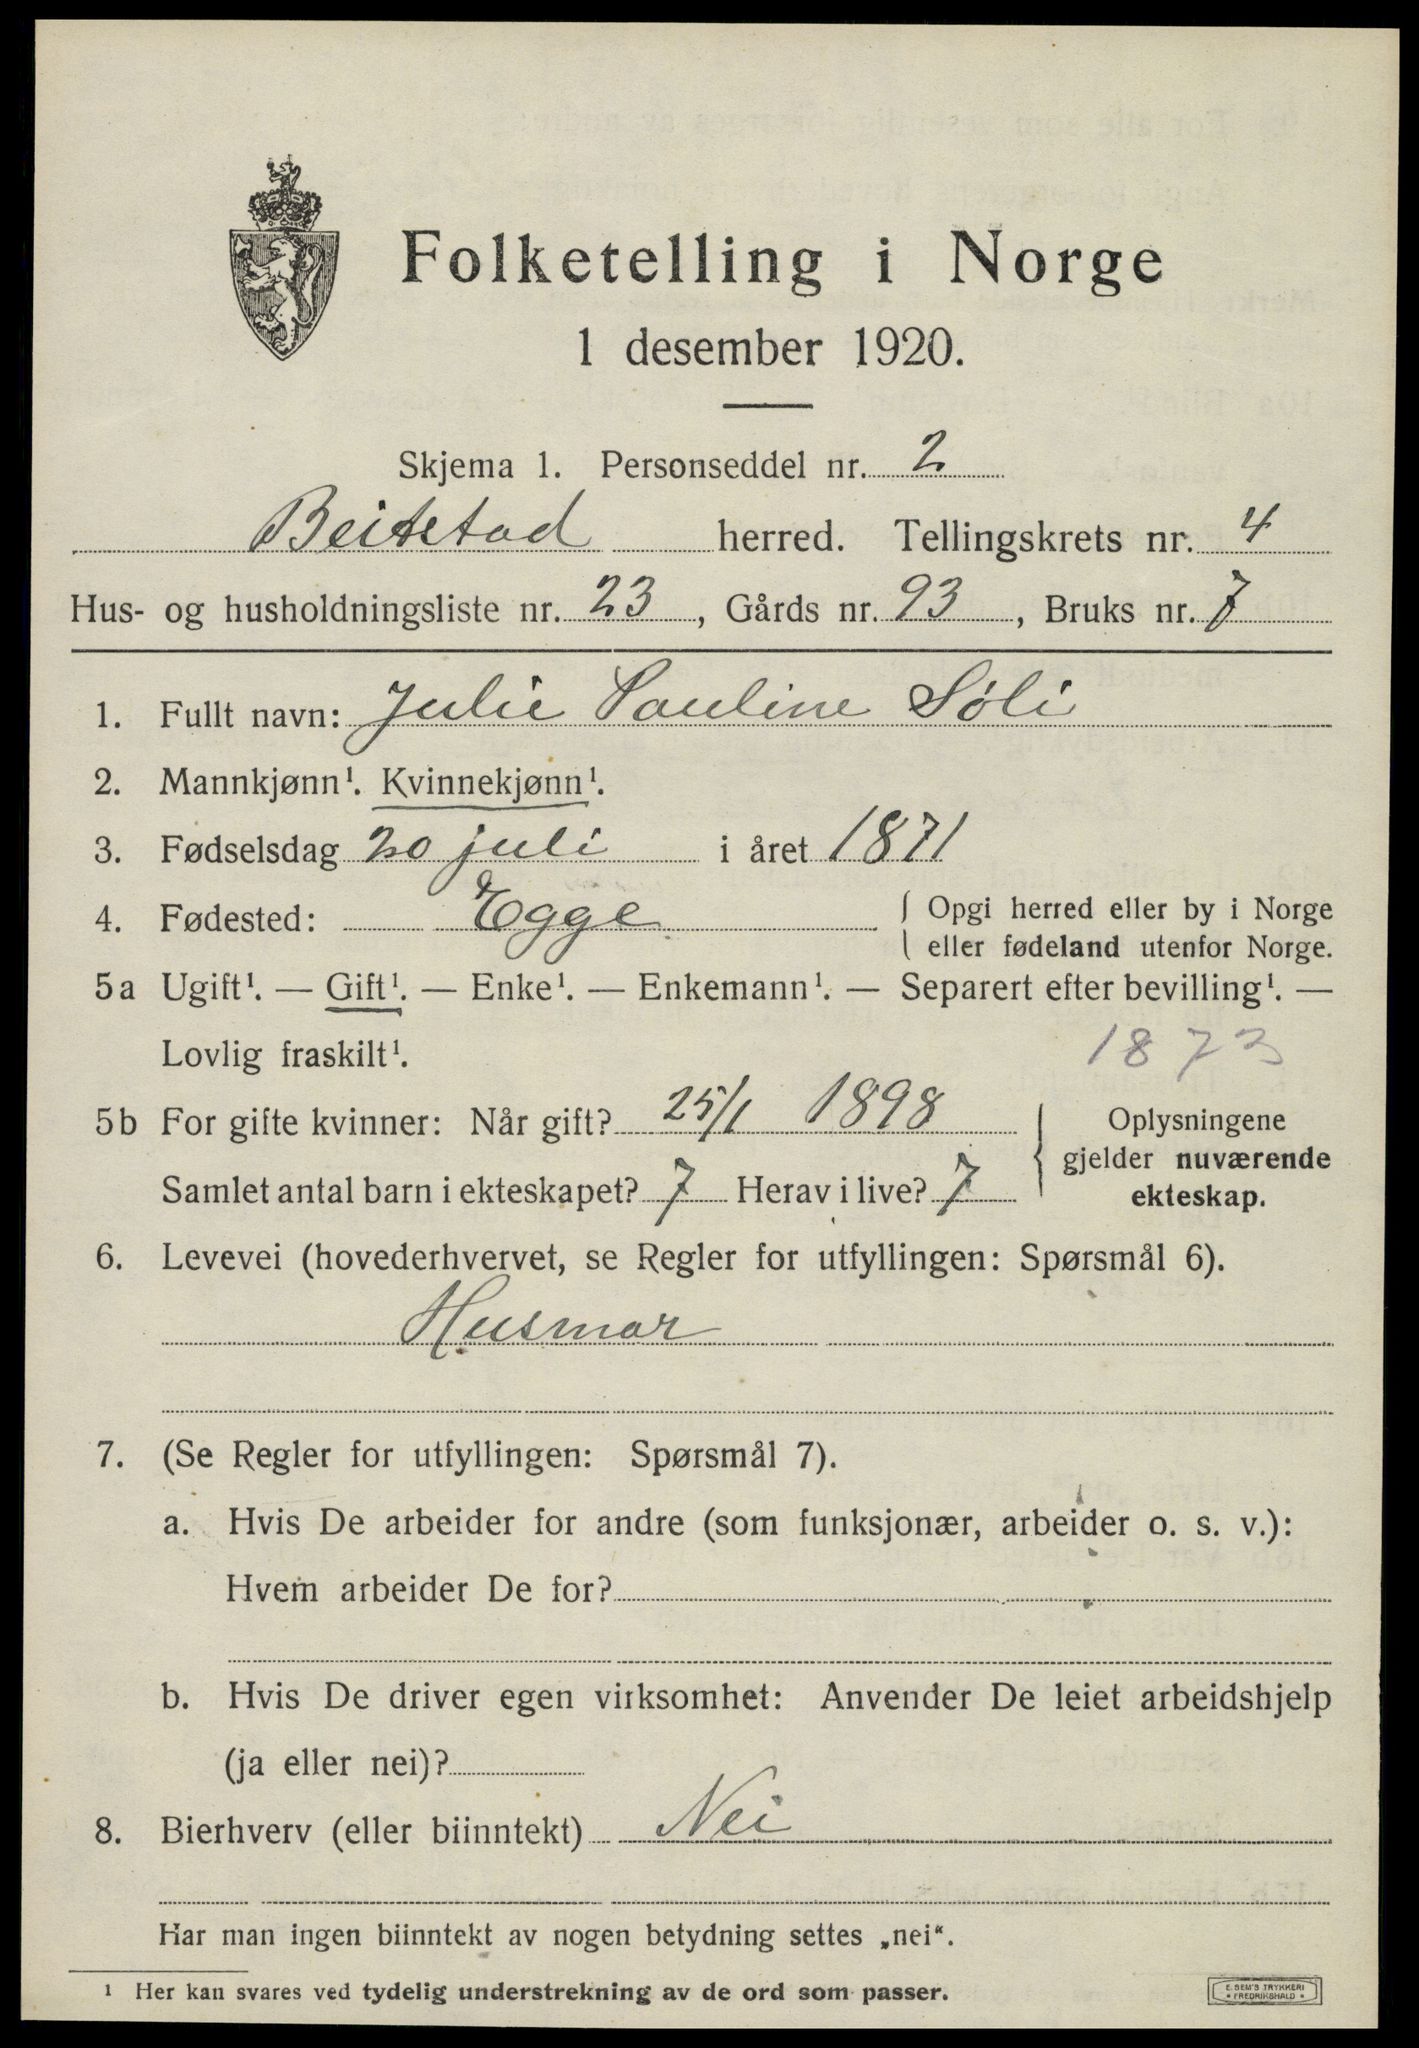 Folketelling i Norge
1 desember 1920.
Skjema 1. Personseddel nr. 2
Beitstad herred. Tellingskrets nr. 4
Hus- og husholdningsliste nr. 23, Gårds nr. 93, Bruks nr. 7
1. Fullt navn: Julie Pauline Søli
2. Mannkjønn¹. Kvinnekjønn¹.
3. Fødselsdag 20 juli i året 1871
4. Fødested: Egge { Opgi herred eller by i Norge
eller fødeland utenfor Norge.
5a Ugift¹. — Gift¹. — Enke¹. — Enkemann¹. — Separert efter bevilling¹. —
Lovlig fraskilt¹. 1873
5b For gifte kvinner: Når gift? 25/1 1898 { Oplysningene
gjelder nuværende
Samlet antal barn i ekteskapet? 7 Herav i live? 7 ekteskap.
6. Levevei (hovederhvervet, se Regler for utfyllingen: Spørsmål 6).
Husmor
7. (Se Regler for utfyllingen: Spørsmål 7).
a. Hvis De arbeider for andre (som funksjonær, arbeider o. s. v.):
Hvem arbeider De for?
b. Hvis De driver egen virksomhet: Anvender De leiet arbeidshjelp
(ja eller nei)?
8. Bierhverv (eller biinntekt) Nei
Har man ingen biinntekt av nogen betydning settes „nei“.
¹ Her kan svares ved tydelig understrekning av de ord som passer.
E. SEM'S TRYKKERI
* FREDRIKSHALD *